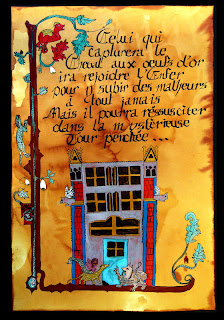 Celui qui
capturera le
Cheval aux oeufs d'or
ira rejoindre l'Enfer
pour y subir des malheurs
à tout jamais
Mais il pourra ressusciter
dans la mystérieuse
Tour penchée...